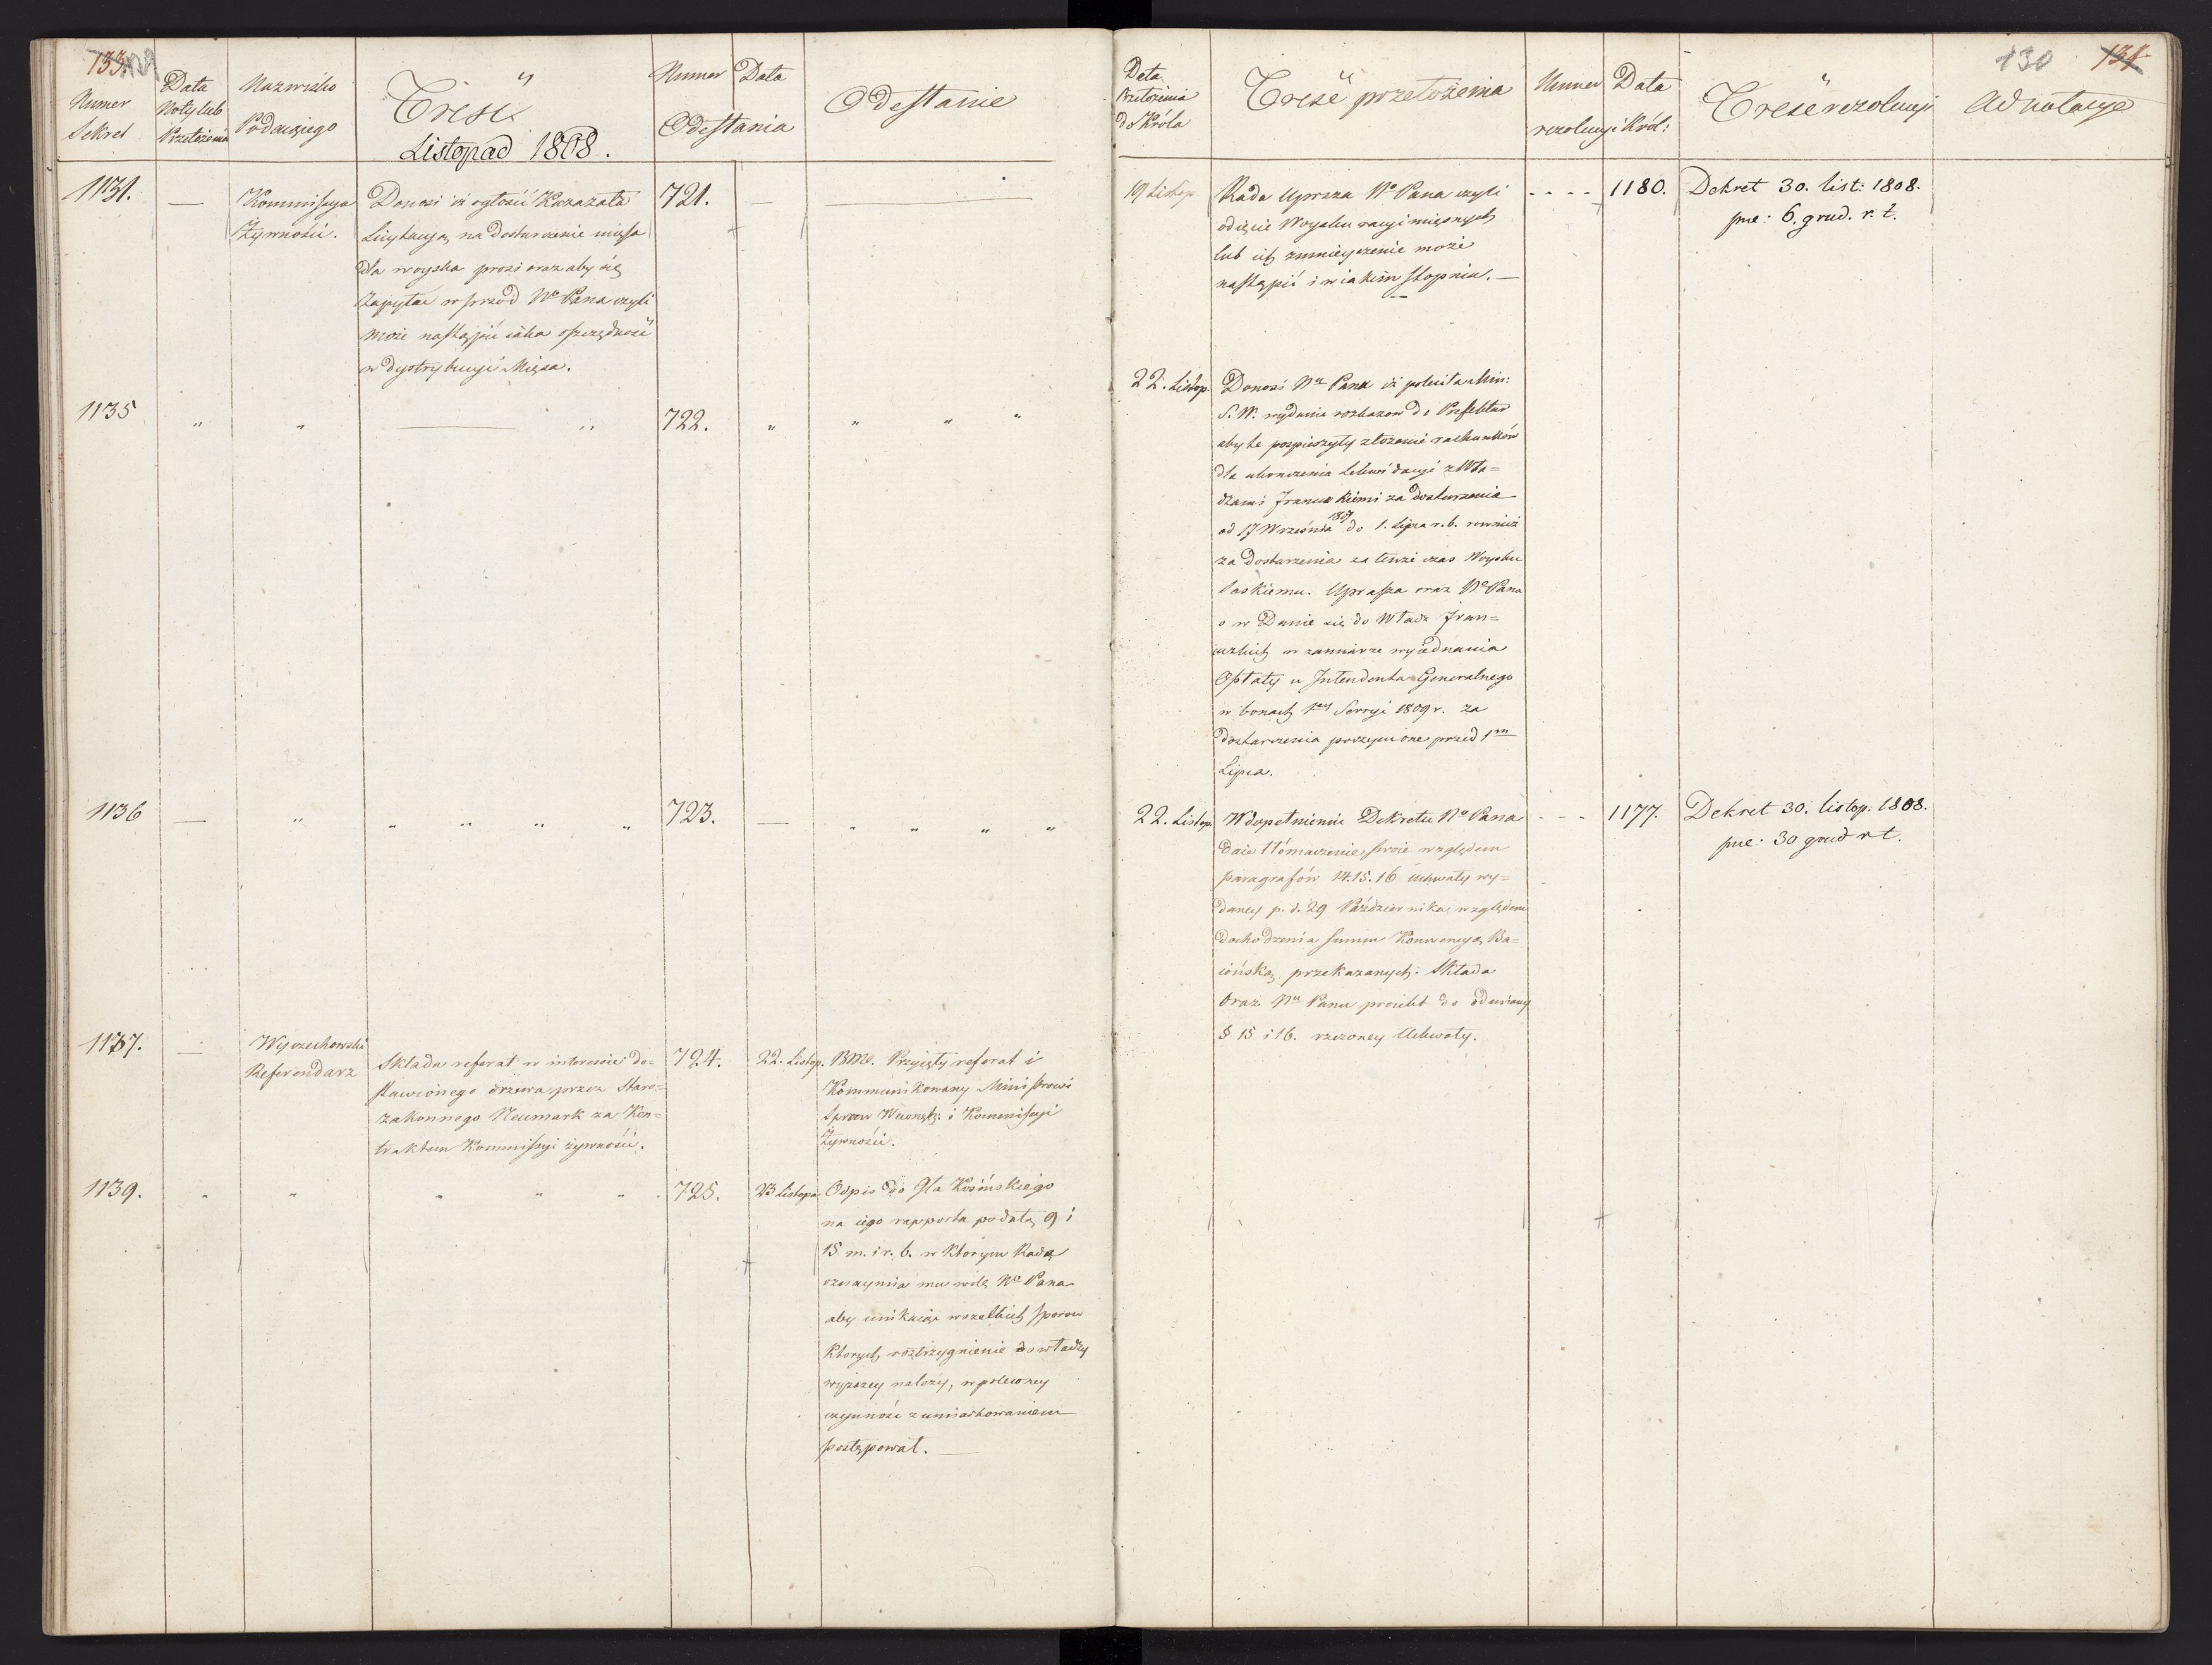 133.
Numer
Sekret
Data
Noty lub
Przełożenia
Nazwisko
Podaiącego
Treść
Listopad 1808.
Numer Data
Odesłania
Odesłanie
1131.
—
Kommissya
Żywności.
Donosi iż ogłosić Kazazała
Licytacyą na dostarczenie mięsa
dla woyska prosi oraz aby się
Zapytać wprzód Nº Pana czyli
może nastąpić iaka oszczędność
w dystrybucyi Mięsa.
721.
—
1135
"
"
"
722.
" " " "
1136
—
" " " " "
723.
—
" " " "
1137.
—
Wyczechowski
Referendarz
Składa referat w interessie do-
stawionego drzewa przez Staro-
zakonnego Neumark za Kon-
traktem Kommissyi żywności.
724.
22. Listop.
Przyięty referat i
Kommunikowany Ministrowi
Spraw Wewnętz: i Kommissyi
Żywności.
1139.
" " " " "
725.
23 Listopa
Odpis do Gła Kosińskiego
na iego rapporta podatą 9 i
15 m. i r. b. w ktorym Rada
oznaymia mu wolą Nº Pana
aby unikaiąc wszelkich sporow
Ktorych rostrzygnienie do władzy
wyższey należy, w poleconey
czynności z umiarkowaniem
postępował. —
Data
Przełożenia
do Króla
Treść przełożenia
Numer Data
rezolucyi Król:
Treść rezolucyi
Adnotacye
130 131
19 Listop
Rada Uprasza Nº Pana czyli
odięcie Woysku racyi mięsnych
lub ich zmnieyszenie może
nastąpić i w iakim stopniu. —
- - - -
1180.
Dekret 30. list: 1808.
pre: 6. grud. r. t.
22. Listop.
Donosi Nu Panu iż poleciła Min:
S. W. wydanie rozkazow do Prefektur
aby te pospieszyły złożenie rachunków
dla ukonczenia Likwidacyi z Wła-
dzami Francuzkiemi za dostarczenia
od 17 Września 1807 do 1. Lipca r. b. rownież
za dostarczenia za tenże czas Woysku
Saskiemu. Uprasza oraz Nº Pana
o w Danie się do Władz Fran-
cuzkich w zamiarze wyiednania
Opłaty u Intendenta Generalnego
w bonach 1ey Serryi 1809 r. za
dostarczenia poczynione przed 1m
Lipca.
22. Listop.
W dopełnieniu Dekretu Nº Pana
daie tłómaczenie swoie względem
paragrafów 14. 15. 16 Uchwały wy-
daney p. d. 29 Października względem
dochodzenia summ Konwencyą Ba-
iońską przekazanych: Składa
oraz Nu Panu proiekt do odmiany
§ 15 i 16. rzeczoney Uchwały.
- - -
1177.
Dekret 30. listop: 1808.
pre: 30 grud r t.